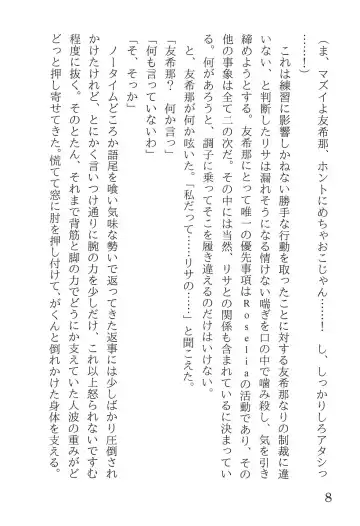 （ま、マズイよ友希那、ホントにめちゃおこじゃん……！　し、しっかりしろアタシっ
……！）
　これは練習に影響しかねない勝手な行動を取ったことに対する友希那なりの制裁に違
いない、と判断したリサは漏れそうになる情けない喘ぎを口の中で噛み殺し、気を引き
締めようとする。友希那にとって唯一の優先事項はＲｏｓｅｌｉａの活動であり、その
他の事象は全て二の次だ。その中には当然、リサとの関係も含まれているに決まってい
る。何があろうと、調子に乗ってそこを履き違えるのだけはいけない。
　と、友希那が何か呟いた。「私だって……リサの……」と聞こえた。
「友希那？　何か言っ」
「何も言っていないわ」
「そ、そっか」
　ノータイムどころか語尾を喰い気味な勢いで返ってきた返事に少しばかり圧倒され
かけたけれど、とにかく言いつけ通りに腕の力を少しだけ、これ以上怒られないですむ
程度に抜いた。そのとたん、それまで背筋と脚の力でどうにか支えていた人波の重みがど
どっと押し寄せてきた。慌てて窓に肘を押し付けて、がくんと倒れかけた身体を支える。
8